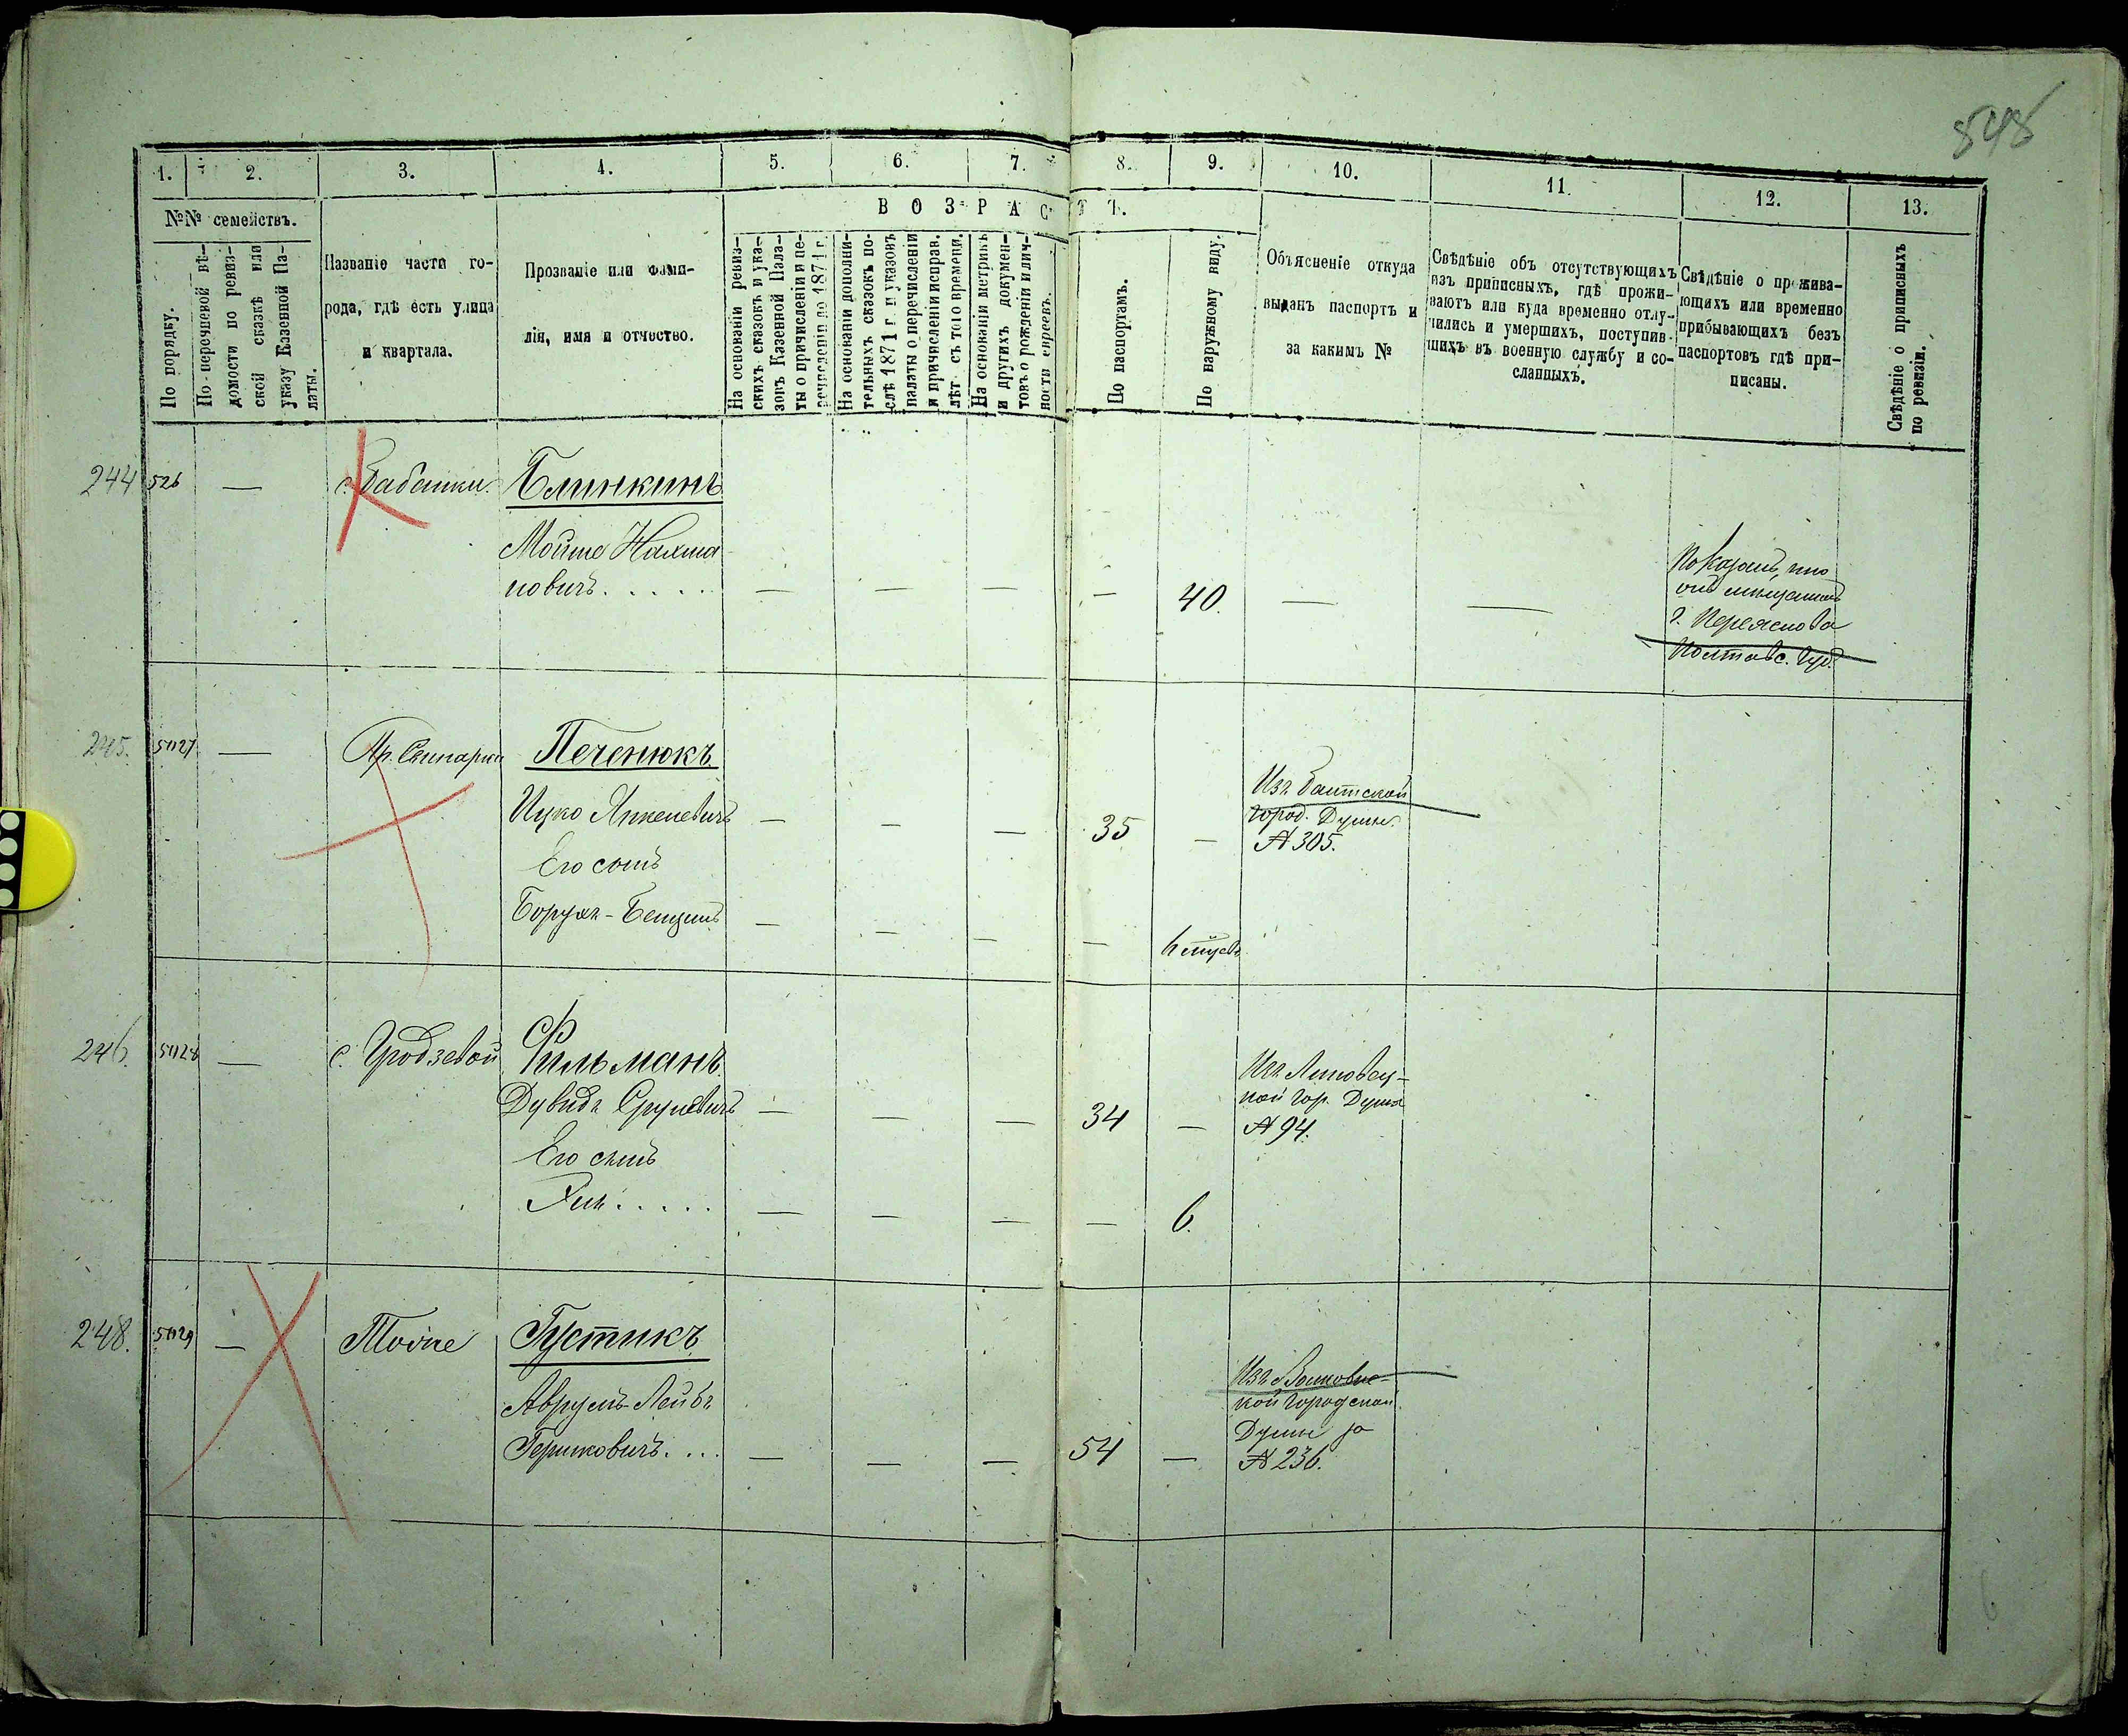 548
1. 2. 3. 4. 5. 6. 7. 8. 9. 10. 11. 12. 13.
№№ семействъ.
По порядку.
По перечневой вѣ-
домости по ревиз-
ской сказкѣ или
указу Казенной Па-
латы.
Названіе части го-
рода, гдѣ есть улица
и квартала.
Прозваніе или фами-
лія, имя и отчество.
ВОЗРАСТЪ.
На основаніи ревиз-
скихъ сказокъ и ука-
зовъ Казенной Пала-
ты о причисленіи и пе-
речисленіи до 1871 г.
На основаніи дополни-
тельныхъ сказокъ по-
слѣ 1871 г. и указовъ
палаты о перечисленіи
и причисленіи исправ.
лѣт съ того времени.
На основаніи метрикъ
и другихъ докумен-
товъ о рожденіи и лич-
ности евреевъ.
По паспортамъ.
По наружному виду.
Объясненіе откуда
выданъ паспортъ и
за какимъ №
Свѣдѣніе объ отсутствующихъ
изъ приписныхъ, гдѣ прожи-
ваютъ или куда временно отлу-
чились и умершихъ, поступив-
шихъ въ военную службу и со-
сланныхъ.
Свѣдѣніе о прожива-
ющихъ или временно
прибывающихъ безъ
паспортовъ гдѣ при-
писаны.
Свѣдѣніе о приписныхъ
по ревизіи.
244 526 — с. Бабанки. Блинкинъ
Мойше Нахма
новичъ. . . . . — — — — 40. — —
Показалъ, что
онъ мѣщанинъ
г. Переяслова
Полтавс. Губ.
245. 527 — Печенюкъ
Ицко Янкелевичъ — — — 35 —
Его сынъ
Борухъ-Бенціинъ — — — —
Изъ Балтской
город. Думы.
№ 305.
246. 528 — с. Гродзевой Фильманъ
Дувидъ Сруневичъ — — — 34 —
Его сынъ
— — — — 6.
Изъ Липовец-
кой гор. Думы
№ 94.
248. 529 — Тоже Густикъ
Аврумъ-Лейбъ
Гершковичъ. . . — — — 54 —
кой городской
Думы за
№ 236.